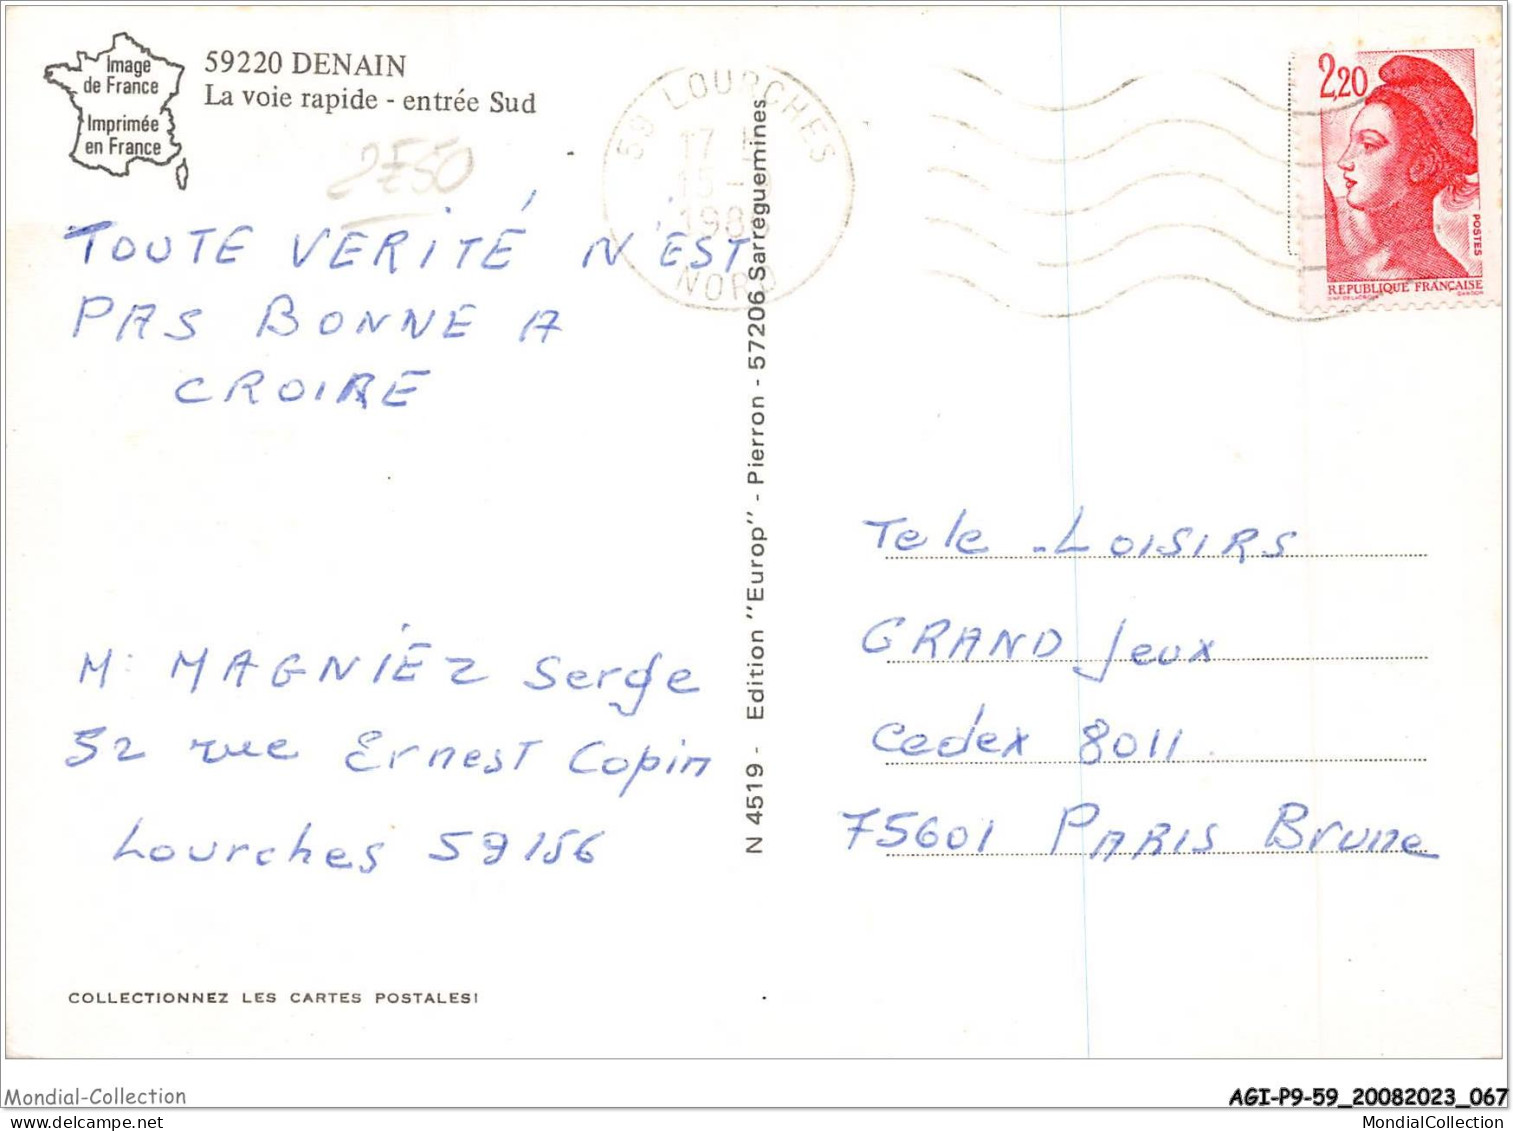 Image
de France
Imprimée
en France
59220 DENAIN
La voie rapide - entrée Sud
2E50
59 LOURCHES
17 H
15 - 9
198
NORD
2,20
POSTES
REPUBLIQUE FRANÇAISE
TOUTE VERITÉ N'EST
PAS BONNE A
CROIRE
M. MAGNIEZ Serge
52 rue Ernest Copin
Lourches 59156
COLLECTIONNEZ LES CARTES POSTALES!
N 4519 - Edition "Europ" - Pierron - 57206 Sarreguemines
Tele - LOISIRS
GRAND Jeux
Cedex 8011
75601 PARIS Brune
Mondial-Collection
AGI-P9-59_20082023_067
MondialCollection